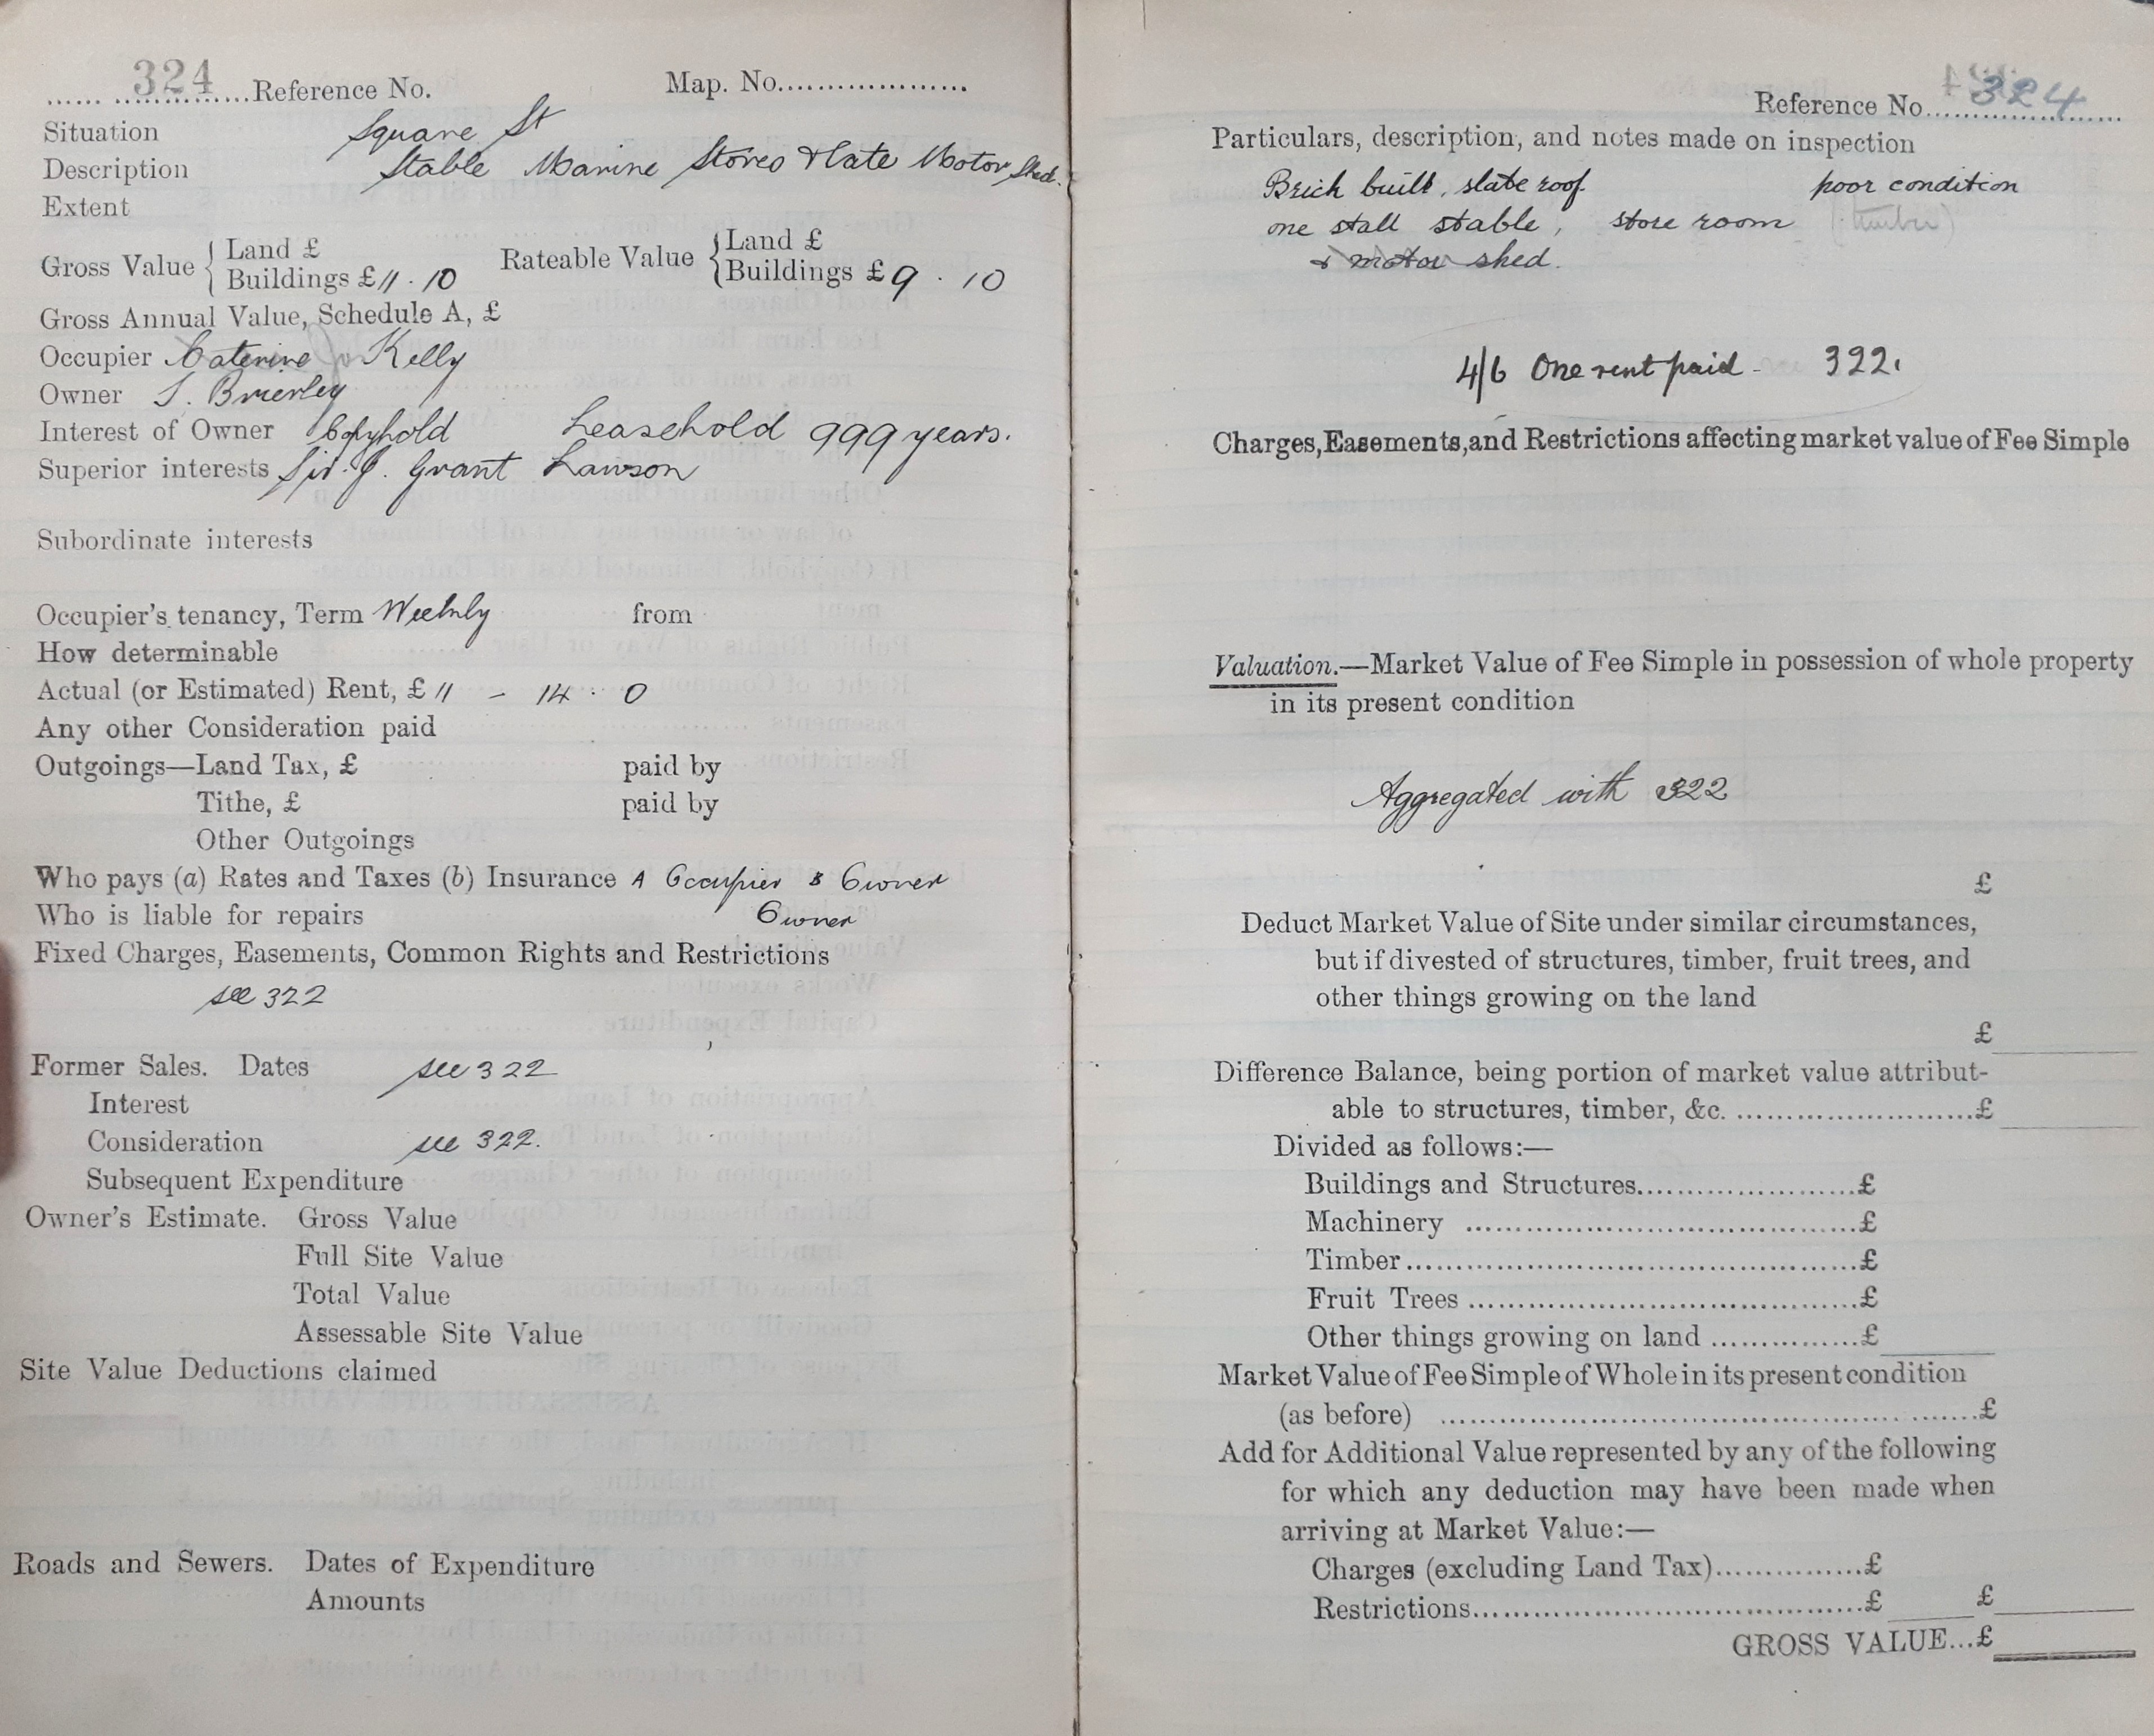 324 Reference No. Map. No.
Situation Square St
Description Stable Marine Stores & late Motor Shed.
Extent
Gross Value { Land £
Buildings £ 11 . 10
Rateable Value { Land £
Buildings £ 9 . 10
Gross Annual Value, Schedule A, £
Occupier Caterine Kelly
Owner S. Brierley
Interest of Owner Copyhold Leasehold 999 years.
Superior interests Sir. J. Grant Lawson
Subordinate interests
Occupier's tenancy, Term Weekly from
How determinable
Actual (or Estimated) Rent, £ 11 - 14 . 0
Any other Consideration paid
Outgoings—Land Tax, £ paid by
Tithe, £ paid by
Other Outgoings
Who pays (a) Rates and Taxes (b) Insurance A Occupier B Owner
Who is liable for repairs Owner
Fixed Charges, Easements, Common Rights and Restrictions
see 322
Former Sales. Dates see 322
Interest
Consideration see 322.
Subsequent Expenditure
Owner's Estimate. Gross Value
Full Site Value
Total Value
Assessable Site Value
Site Value Deductions claimed
Roads and Sewers. Dates of Expenditure
Amounts
Reference No. 324
Particulars, description, and notes made on inspection
Brick built, slate roof. poor condition
one stall stable, store room (timber)
& motor shed.
4/6 One rent paid - 322.
Charges, Easements, and Restrictions affecting market value of Fee Simple
Valuation.—Market Value of Fee Simple in possession of whole property
in its present condition
Aggregated with 322
£
Deduct Market Value of Site under similar circumstances,
but if divested of structures, timber, fruit trees, and
other things growing on the land
£
Difference Balance, being portion of market value attribut-
able to structures, timber, &c. £
Divided as follows:—
Buildings and Structures £
Machinery £
Timber £
Fruit Trees £
Other things growing on land £
Market Value of Fee Simple of Whole in its present condition
(as before) £
Add for Additional Value represented by any of the following
for which any deduction may have been made when
arriving at Market Value:—
Charges (excluding Land Tax) £
Restrictions £ £
GROSS VALUE...£